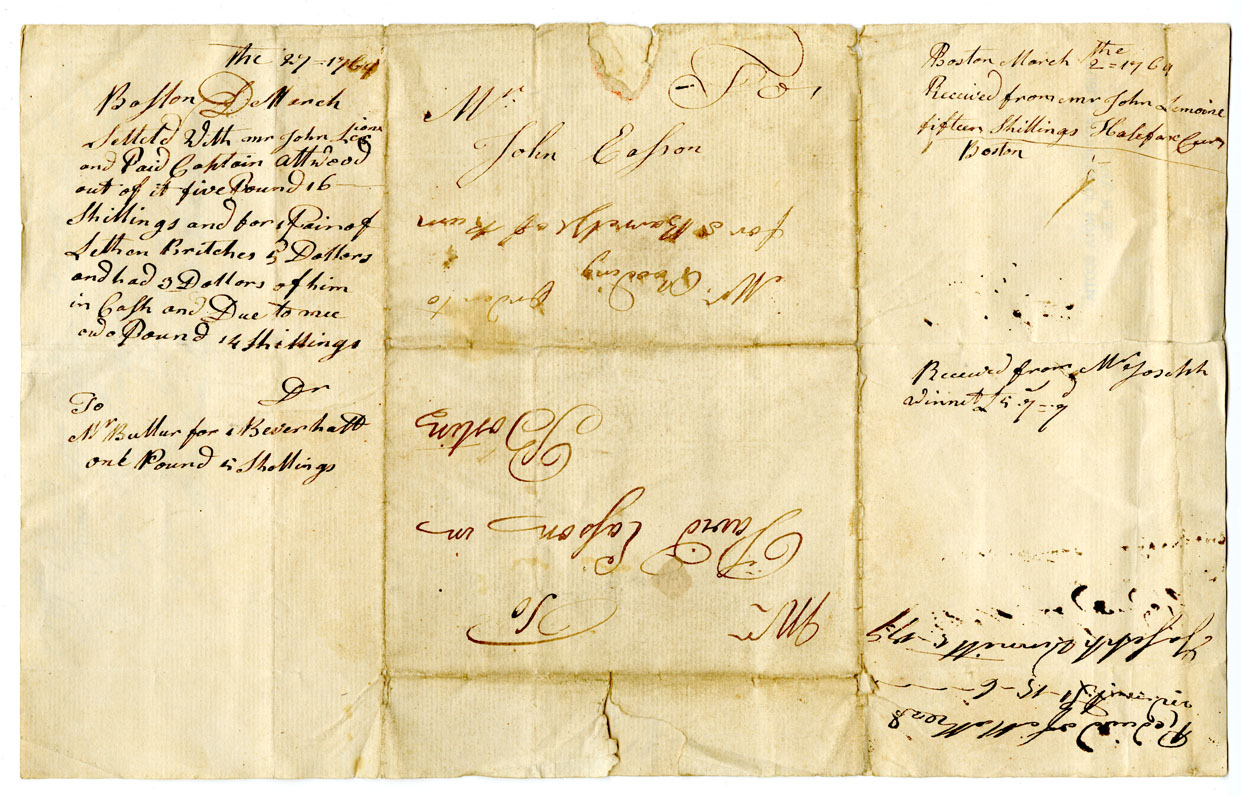 the 27=1764
Boston D March
Setteld With mr John Lee
and Paid Captain attwood
out of it five Pound 16
Shillings and for 1 Pair of
Lethen Britches 5 Dollors
and had 3 Dollors of him
in Cash and Due to mee
Pound 14 Shillings
Dr
To
Mr Buttur for 1 Bever hatt
one Pound 5 Shollings
To,
Mr
John Easson
Mr Gooding
Order to
for 2 Barrells of Rum
To
Mr
David Easson in
Bostin
Boston March the 2=1764
Received from mr John Lemoine
fifteen Shillings Halefax Curry
Boston
Received from Mr Joseph
Winnet £5=7=9
Received of
15-6
Joseph Winnett 5-7-9